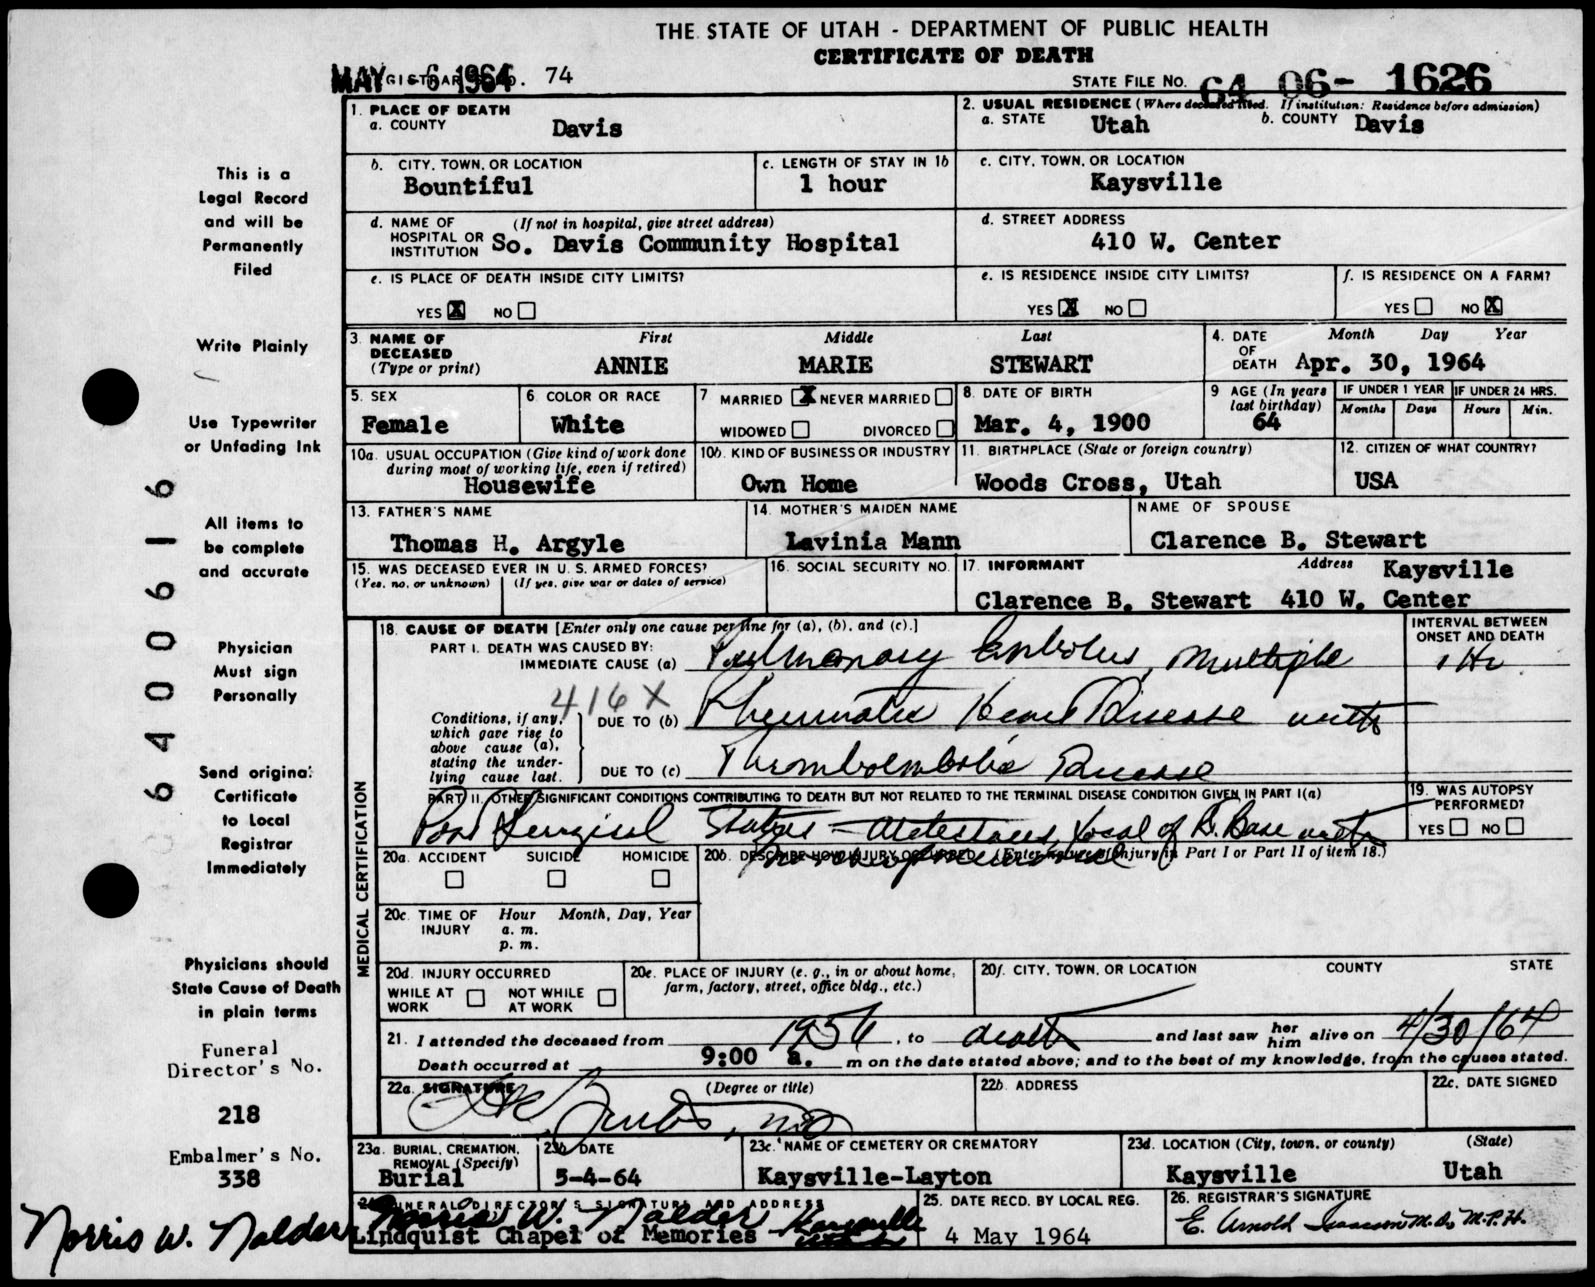 THE STATE OF UTAH - DEPARTMENT OF PUBLIC HEALTH
CERTIFICATE OF DEATH
MAY - 6 1964 74
STATE FILE NO. 64 06- 1626
1. PLACE OF DEATH
a. COUNTY Davis
2. USUAL RESIDENCE (Where deceased lived. If institution: Residence before admission)
a. STATE Utah b. COUNTY Davis
b. CITY, TOWN, OR LOCATION
Bountiful
c. LENGTH OF STAY IN 1b
1 hour
c. CITY, TOWN, OR LOCATION
Kaysville
d. NAME OF HOSPITAL OR INSTITUTION (If not in hospital, give street address)
So. Davis Community Hospital
d. STREET ADDRESS
410 W. Center
e. IS PLACE OF DEATH INSIDE CITY LIMITS?
YES X NO
e. IS RESIDENCE INSIDE CITY LIMITS?
YES X NO
f. IS RESIDENCE ON A FARM?
YES NO X
3. NAME OF DECEASED (Type or print)
First Middle Last
ANNIE MARIE STEWART
4. DATE OF DEATH
Month Day Year
Apr. 30, 1964
5. SEX
Female
6. COLOR OR RACE
White
7 MARRIED X NEVER MARRIED
WIDOWED DIVORCED
8. DATE OF BIRTH
Mar. 4, 1900
9 AGE (In years last birthday)
64
IF UNDER 1 YEAR IF UNDER 24 HRS.
Months Days Hours Min.
10a. USUAL OCCUPATION (Give kind of work done during most of working life, even if retired)
Housewife
10b. KIND OF BUSINESS OR INDUSTRY
Own Home
11. BIRTHPLACE (State or foreign country)
Woods Cross, Utah
12. CITIZEN OF WHAT COUNTRY?
USA
13. FATHER'S NAME
Thomas H. Argyle
14. MOTHER'S MAIDEN NAME
Lavinia Mann
NAME OF SPOUSE
Clarence B. Stewart
15. WAS DECEASED EVER IN U. S. ARMED FORCES?
(Yes, no, or unknown) (If yes, give war or dates of service)
16. SOCIAL SECURITY NO.
17. INFORMANT Address Kaysville
Clarence B. Stewart 410 W. Center
MEDICAL CERTIFICATION
18. CAUSE OF DEATH [Enter only one cause per line for (a), (b), and (c).]
INTERVAL BETWEEN ONSET AND DEATH
PART I. DEATH WAS CAUSED BY:
IMMEDIATE CAUSE (a) Pulmonary Embolus, Multiple 1 Hr
416X
Conditions, if any, which gave rise to above cause (a), stating the underlying cause last.
DUE TO (b) Rheumatic Heart Disease with
DUE TO (c) Thromboembolic Disease
PART II. OTHER SIGNIFICANT CONDITIONS CONTRIBUTING TO DEATH BUT NOT RELATED TO THE TERMINAL DISEASE CONDITION GIVEN IN PART I(a)
Post Surgical Status -
19. WAS AUTOPSY PERFORMED?
YES NO
20a. ACCIDENT SUICIDE HOMICIDE
20b. DESCRIBE HOW INJURY OCCURRED. (Enter nature of injury in Part I or Part II of item 18.)
20c. TIME OF INJURY Hour Month, Day, Year
a. m.
p. m.
20d. INJURY OCCURRED
WHILE AT WORK NOT WHILE AT WORK
20e. PLACE OF INJURY (e. g., in or about home, farm, factory, street, office bldg., etc.)
20f. CITY, TOWN, OR LOCATION COUNTY STATE
21. I attended the deceased from 1956, to death and last saw her him alive on 4/30/64
Death occurred at 9:00 a. m on the date stated above; and to the best of my knowledge, from the causes stated.
22a. SIGNATURE (Degree or title)
22b. ADDRESS
22c. DATE SIGNED
23a. BURIAL, CREMATION, REMOVAL (Specify)
Burial
23b. DATE
5-4-64
23c. NAME OF CEMETERY OR CREMATORY
Kaysville-Layton
23d. LOCATION (City, town, or county) (State)
Kaysville Utah
24. FUNERAL DIRECTOR'S SIGNATURE AND ADDRESS
Norris W. Nalder Kaysville
Lindquist Chapel of Memories
25. DATE RECD. BY LOCAL REG.
4 May 1964
26. REGISTRAR'S SIGNATURE
E. Arnold Isaacson M.D. M.P.H.
This is a
Legal Record
and will be
Permanently
Filed
Write Plainly
Use Typewriter
or Unfading Ink
All items to
be complete
and accurate
Physician
Must sign
Personally
Send original
Certificate
to Local
Registrar
Immediately
Physicians should
State Cause of Death
in plain terms
Funeral
Director's No.
218
Embalmer's No.
338
Norris W. Nalder
6400616